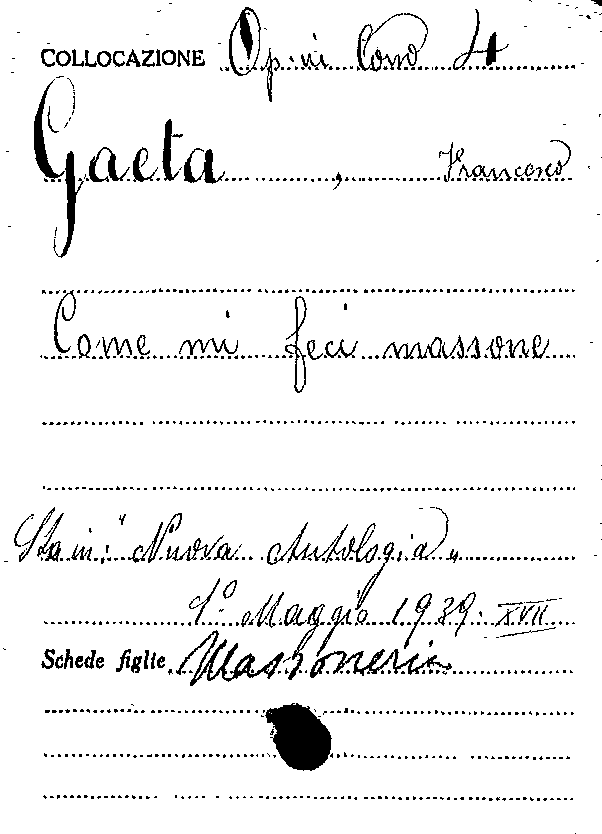 COLLOCAZIONE Op. in Cons 4
Gaeta, Francesco
Come mi feci massone
Sta in: "Nuova Antologia"
1° Maggio 1939. XVII
Schede figlie Massoneria